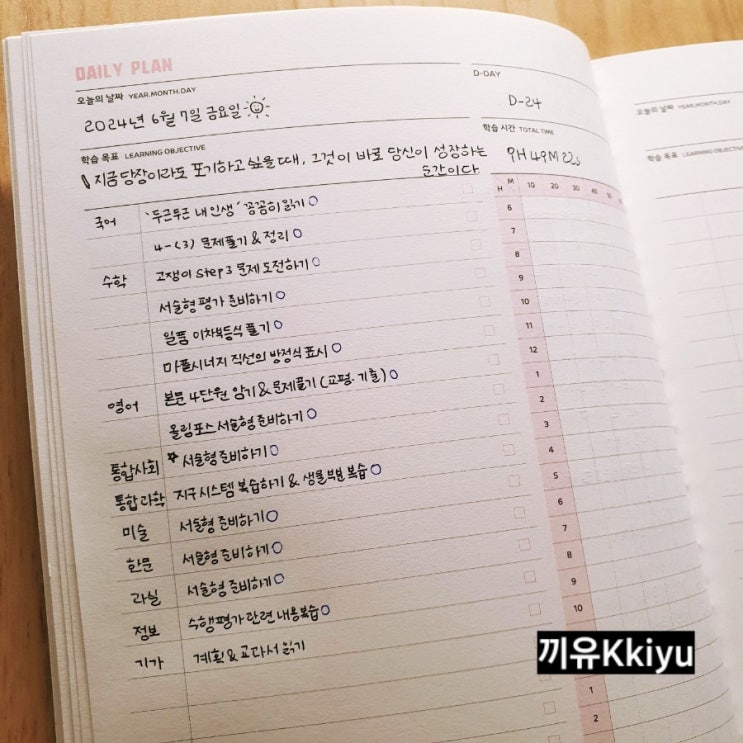 DAILY PLAN
오늘의 날짜 YEAR.MONTH.DAY
D-DAY
2024년 6월 7일 금요일
D-24
학습 목표 LEARNING OBJECTIVE
학습 시간 TOTAL TIME
지금 당장이라도 포기하고 싶을 때, 그것이 바로 당신이 성장하는
순간이다
9H 49M 22s
국어 '두근두근 내 인생' 꼼꼼히 읽기 ○
4-(3) 문제풀기 & 정리 ○
수학 고쟁이 step3 문제 도전하기 ○
서술형 평가 준비하기 ○
일품 이차부등식 풀기 ○
마플시너지 직선의 방정식 표시 ○
영어 본문 4단원 암기 & 문제풀기 (교평·기출) ○
올림포스 서술형 준비하기 ○
통합사회 서술형 준비하기 ○
통합과학 지구시스템 복습하기 & 생물 부분 복습 ○
미술 서술형 준비하기 ○
한문 서술형 준비하기 ○
과실 서술형 준비하기 ○
정보 수행평가 관련 내용 복습 ○
기가 계획 & 교과서 읽기
H M 10 20 30 40
6
7
8
9
10
11
12
1
2
3
4
5
6
7
8
9
10
1
2
오늘의 날짜 YEAR.MONTH.DAY
학습 목표 LEARNING OBJECTIVE
끼유Kkiyu